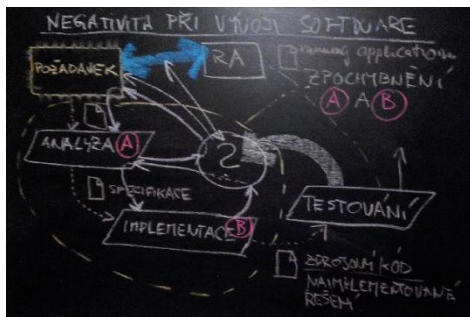 NEGATIVITA PŘI VÝVOJI SOFTWARE
POŽADAVEK
RA
running application
ZPOCHYBNĚNÍ
A A B
ANALÝZA A
?
SPECIFIKACE
IMPLEMENTACE B
TESTOVÁNÍ
ZDROJOVÝ KÓD
NAIMPLEMENTOVANÉ
ŘEŠENÍ